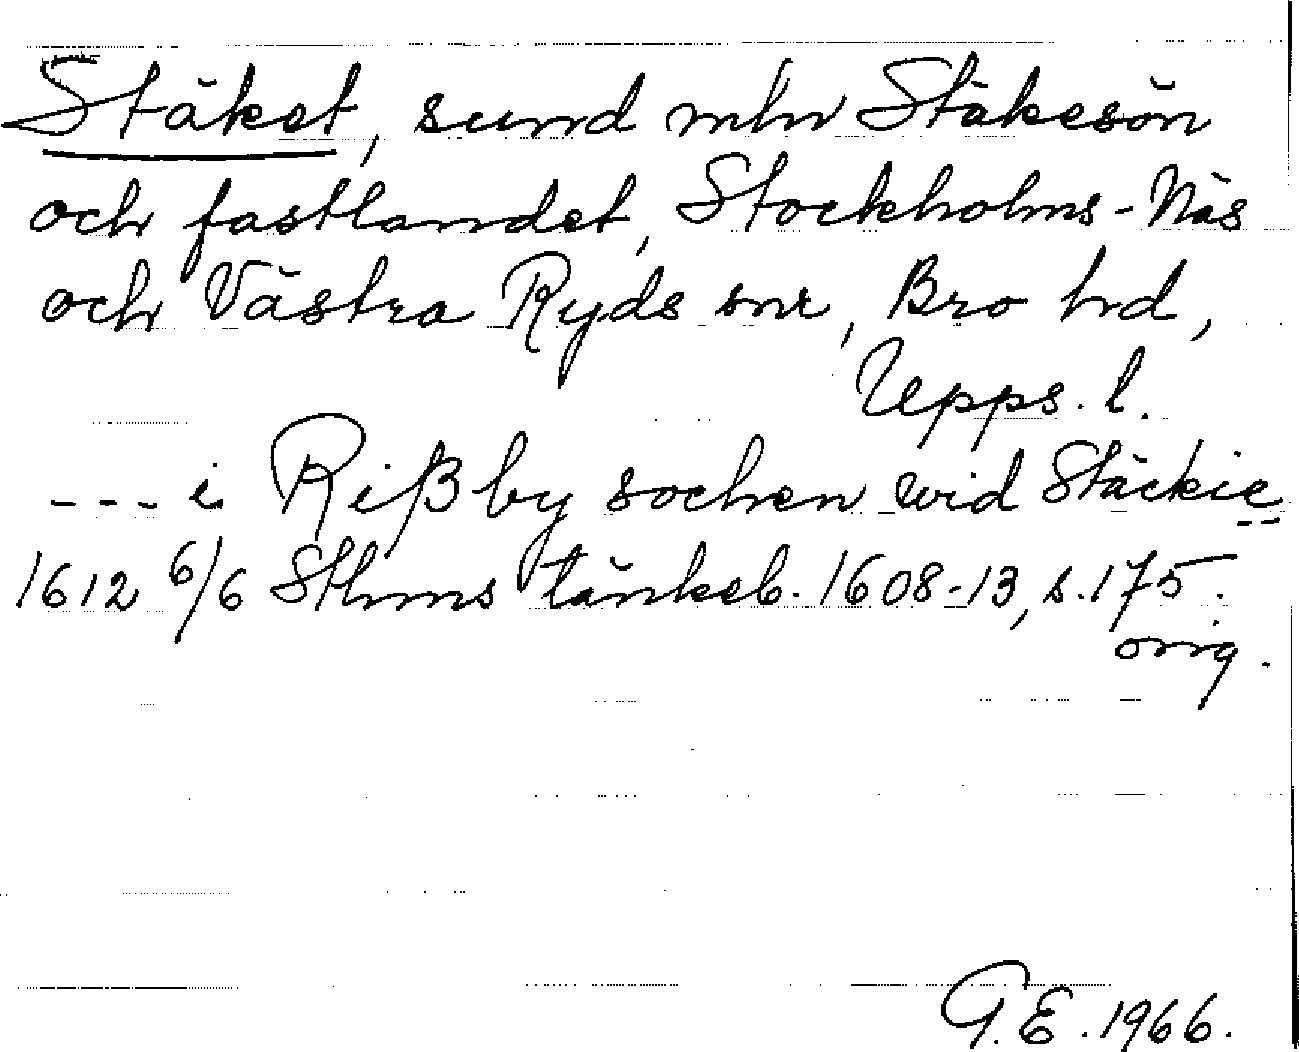 Stäket, sund mln Stäkesön
och fastlandet, Stockholms-Näs
och Västra Ryds snr, Bro hd,
Upps. l.
--- i Rißby sochen wid Stäckie
1612 6/6 Sthms tänkeb. 1608-13, s. 175.
orig.
G.E. 1966.